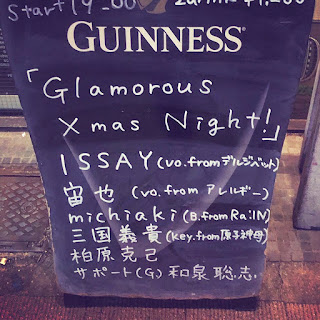 Start 19:00
GUINNESS
「Glamorous
Xmas Night!」
ISSAY (vo.from デルジベット)
宙也 (vo.from アレルギー)
michiaki (B.from Ra:IN)
三国義貴 (key.from 原子神母)
柏原克己
サポート(G) 和泉聡志.